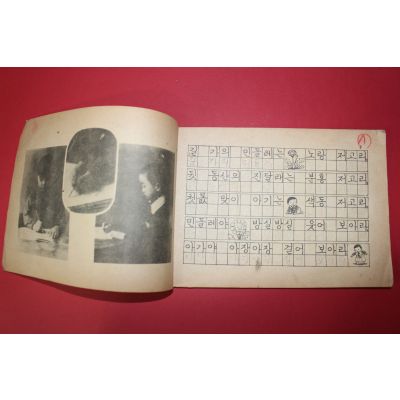 길 가의 민들레는 노랑 저고리
뒷 동산의 진달래는 분홍 저고리
첫돌 맞이 아기는 색동 저고리
민들레야 방실방실 웃어 보아라
아가야 아장아장 걸어 보아라